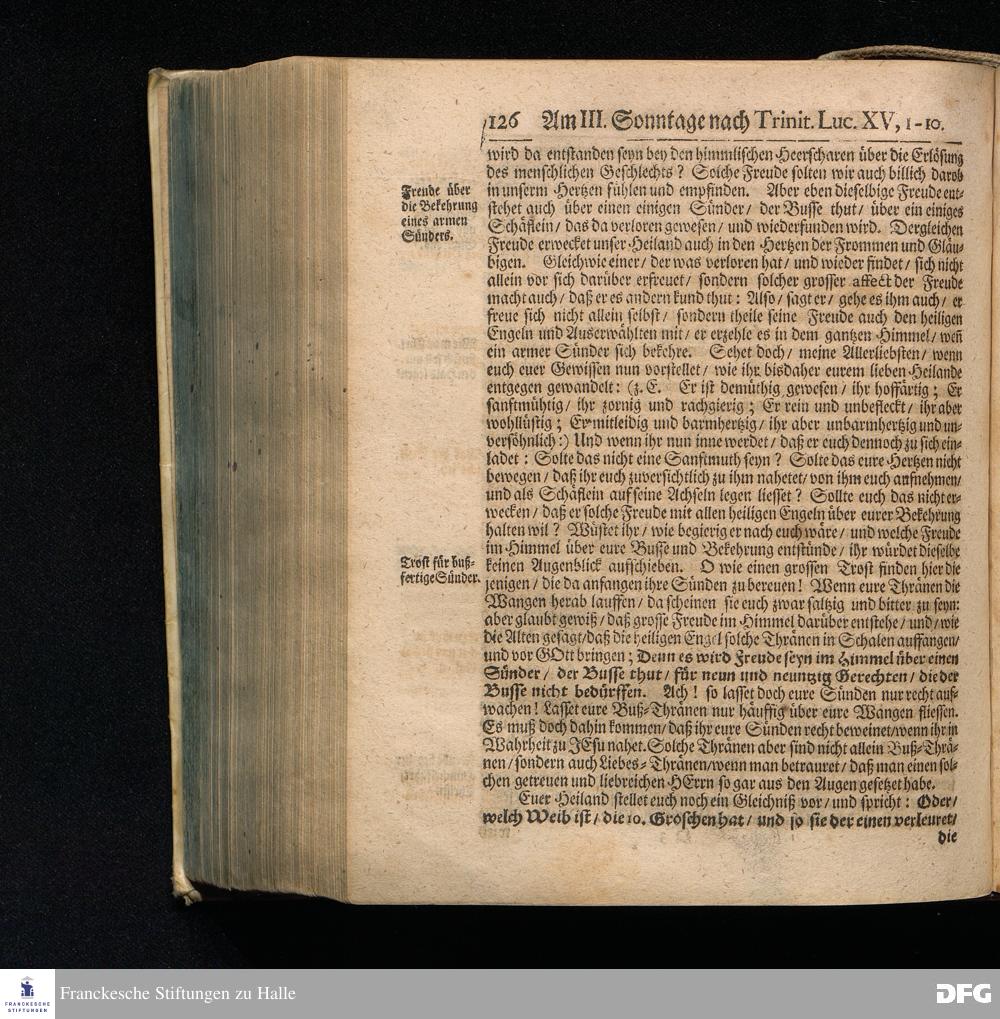 126 Am III. Sonntage nach Trinit. Luc. XV, 1-10.
wird da entstanden seyn bey den himmlischen Heerscharen über die Erlösung
des menschlichen Geschlechts? Solche Freude solten wir auch billich darob
in unserm Hertzen fühlen und empfinden. Aber eben dieselbige Freude ent-
stehet auch über einen einigen Sünder/ der Busse thut/ über ein einiges
Schäflein/ das da verloren gewesen/ und wiederfunden wird. Dergleichen
Freude erwecket unser Heiland auch in den Hertzen der Frommen und Gläu-
bigen. Gleichwie einer/ der was verloren hat/ und wieder findet/ sich nicht
allein vor sich darüber erfreuet/ sondern solcher grosser affect der Freude
macht auch/ daß er es andern kund thut: Also/ sagt er/ gehe es ihm auch/ er
freue sich nicht allein selbst/ sondern theile seine Freude auch den heiligen
Engeln und Auserwählten mit/ er erzehle es in dem gantzen Himmel/ weñ
ein armer Sünder sich bekehre. Sehet doch/ meine Allerliebsten/ wenn
euch euer Gewissen nun vorstellet/ wie ihr bisdaher eurem lieben Heilande
entgegen gewandelt: (z. E. Er ist demüthig gewesen/ ihr hoffärtig; Er
sanftmühtig/ ihr zornig und rachgierig; Er rein und unbefleckt/ ihr aber
wohllüstig; Er mitleidig und barmhertzig/ ihr aber unbarmhertzig und un-
versöhnlich:) Und wenn ihr nun inne werdet/ daß er euch dennoch zu sich ein-
ladet: Solte das nicht eine Sanftmuth seyn? Solte das eure Hertzen nicht
bewegen/ daß ihr euch zuversichtlich zu ihm nahetet/ von ihm euch aufnehmen/
und als Schäflein auf seine Achseln legen liesset? Sollte euch das nicht er-
wecken/ daß er solche Freude mit allen heiligen Engeln über eurer Bekehrung
halten wil? Wüstet ihr/ wie begierig er nach euch wäre/ und welche Freude
im Himmel über eure Busse und Bekehrung entstünde/ ihr würdet dieselbe
keinen Augenblick aufschieben. O wie einen grossen Trost finden hier die
jenigen/ die da anfangen ihre Sünden zu bereuen! Wenn eure Thränen die
Wangen herab lauffen/ da scheinen sie euch zwar saltzig und bitter zu seyn:
aber glaubt gewiß/ daß grosse Freude im Himmel darüber entstehe/ und/ wie
die Alten gesagt/ daß die heiligen Engel solche Thränen in Schalen auffangen/
und vor GOtt bringen; Denn es wird Freude seyn im Himmel über einen
Sünder/ der Busse thut/ für neun und neuntzig Gerechten/ die der
Busse nicht bedürffen. Ach! so lasset doch eure Sünden nur recht auf-
wachen! Lasset eure Buß-Thränen nur häuffig über eure Wangen fliessen.
Es muß doch dahin kommen/ daß ihr eure Sünden recht beweinet/wenn ihr in
Wahrheit zu JEsu nahet. Solche Thränen aber sind nicht allein Buß-Thrä-
nen/ sondern auch Liebes-Thränen/wenn man betrauret/ daß man einen sol-
chen getreuen und liebreichen HErrn so gar aus den Augen gesetzet habe.
Euer Heiland stellet euch noch ein Gleichniß vor/ und spricht: Oder/
welch Weib ist/ die 10. Groschen hat/ und so sie der einen verleuret/
die
Freude über
die Bekehrung
eines armen
Sünders.
Trost für buß-
fertige Sünder.
Franckesche Stiftungen zu Halle
FRANCKESCHE
STIFTUNGEN
DFG